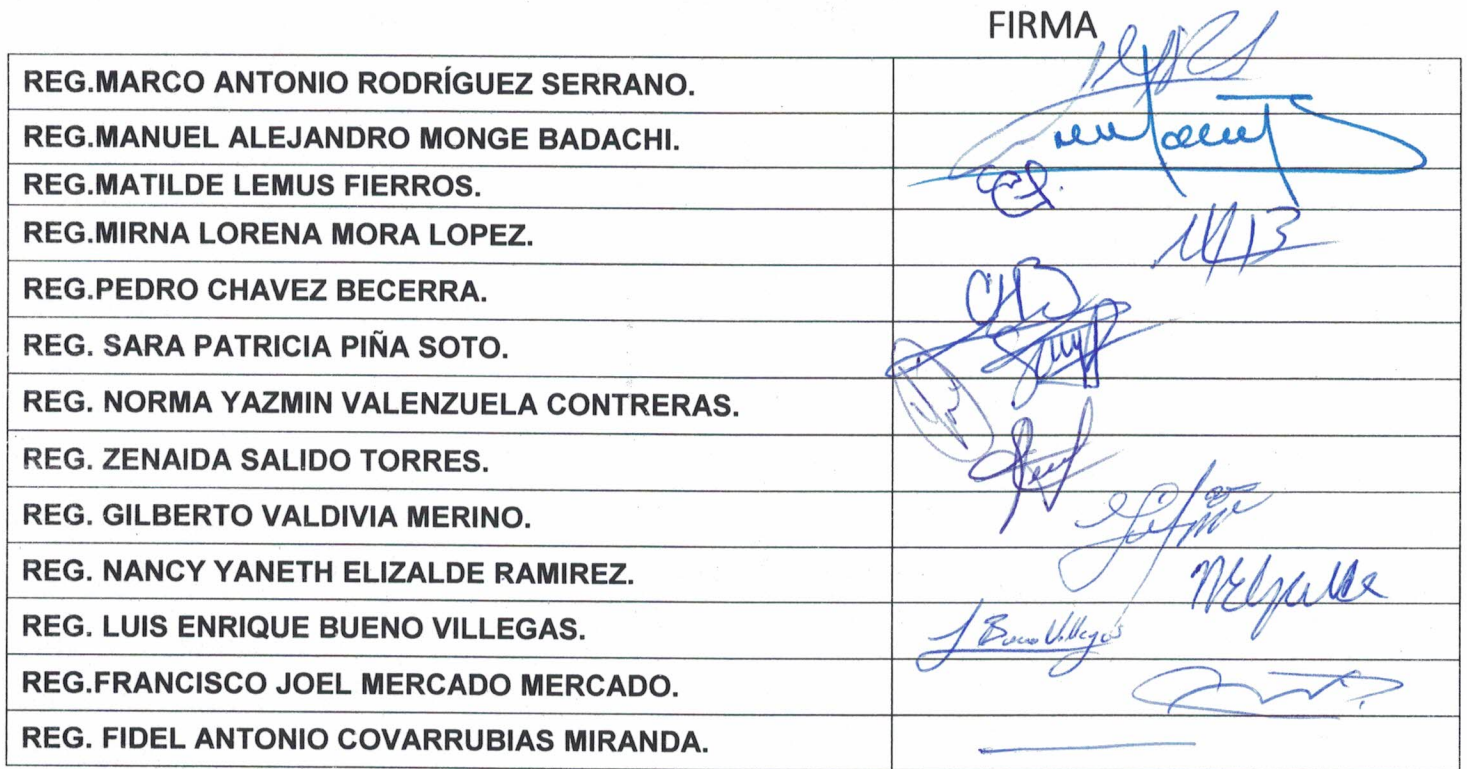 FIRMA
REG.MARCO ANTONIO RODRÍGUEZ SERRANO.
REG.MANUEL ALEJANDRO MONGE BADACHI.
REG.MATILDE LEMUS FIERROS.
REG.MIRNA LORENA MORA LOPEZ.
REG.PEDRO CHAVEZ BECERRA.
CHB
REG. SARA PATRICIA PIÑA SOTO.
REG. NORMA YAZMIN VALENZUELA CONTRERAS.
REG. ZENAIDA SALIDO TORRES.
REG. GILBERTO VALDIVIA MERINO.
REG. NANCY YANETH ELIZALDE RAMIREZ.
REG. LUIS ENRIQUE BUENO VILLEGAS. L Bueno Villegas
REG.FRANCISCO JOEL MERCADO MERCADO.
REG. FIDEL ANTONIO COVARRUBIAS MIRANDA.